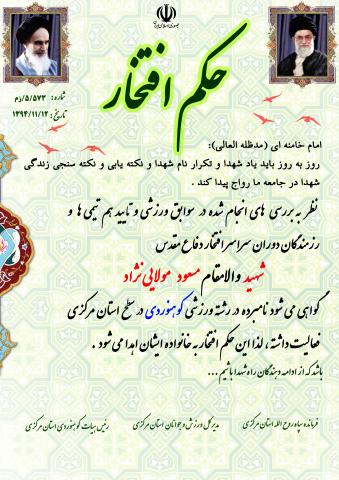 جمهوری اسلامی ایران
حکم افتخار
شماره: ۵/۵۷۳/زم
تاریخ: ۱۳۹۴/۱۱/۱۲
امام خامنه ای (مدظله العالی):
روز به روز باید یاد شهدا و تکرار نام شهدا و نکته یابی و نکته سنجی زندگی
شهدا در جامعه ما رواج پیدا کند .
نظر به بررسی های انجام شده در سوابق ورزشی و تایید هم تیمی ها و
رزمندگان دوران سراسر افتخار دفاع مقدس
شهید والامقام مسعود مولایی نژاد
گواهی می شود نامبرده در رشته ورزشی کوهنوردی در سطح استان مرکزی
فعالیت داشته ، لذا این حکم افتخار به خانواده ایشان اهدا می شود .
باشد که از ادامه دهندگان راه شهدا باشیم...
فرمانده سپاه روح الله استان مرکزی
مدیر کل ورزش و جوانان استان مرکزی
رئیس هیات کوهنوردی استان مرکزی